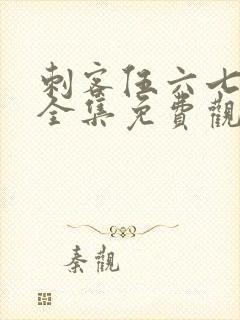 刺客伍六七
全集免費觀
秦觀